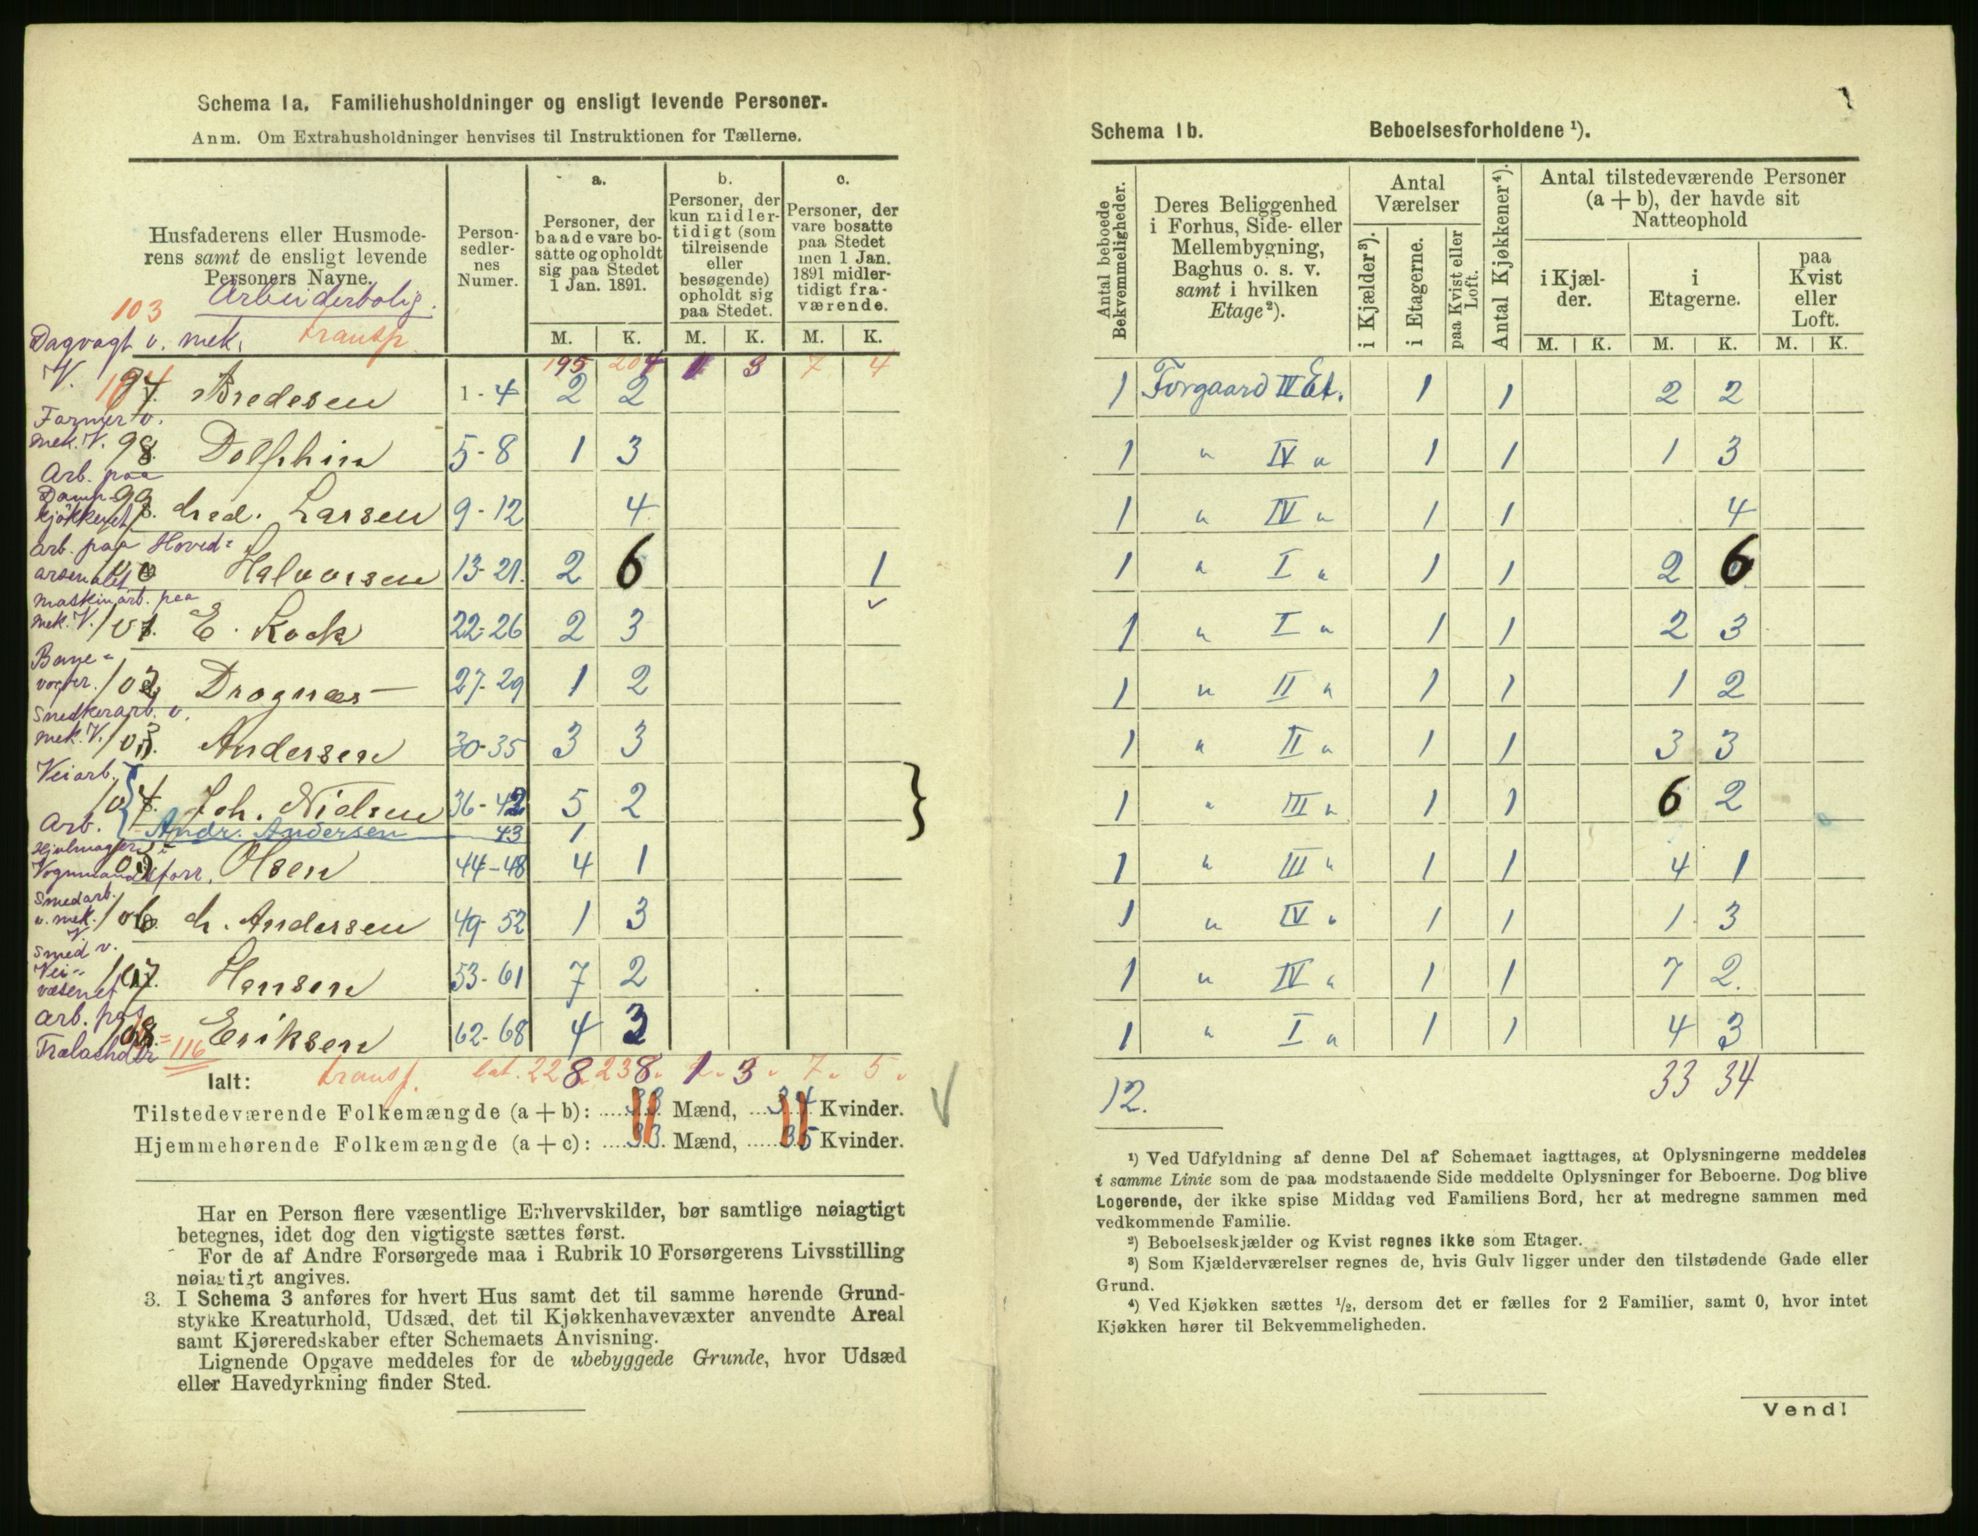 Schema 1a. Familiehusholdninger og ensligt levende Personer.
Anm. Om Extrahusholdninger henvises til Instruktionen for Tællerne.
Husfaderens eller Husmode-
rens samt de ensligt levende
Personers Navne.
Person-
sedler-
nes
Numer.
a.
Personer, der
baade vare bo-
satte og opholdt
sig paa Stedet
1 Jan. 1891.
b.
Personer, der
kun midler-
tidigt (som
tilreisende
eller
besøgende)
opholdt sig
paa Stedet.
c.
Personer, der
vare bosatte
paa Stedet
men 1 Jan.
1891 midler-
tidigt fra-
værende.
M. K. M. K. M. K.
103 Arbeiderbolig.
Dagvagt v. mek. transp.
V. 195 204 1 3 7 4
97. Bredesen 1-4 2 2
Farmer v.
mek. V. 98. Dolphin 5-8 1 3
Arb. paa
Damp-
kjøkkenet 99. Larsen 9-12 4
Arb. paa Hoved-
arsenalet Halvorsen 13-21. 2 6 1
Maskinarb. paa
mek. V. 101. E. Kock 22-26 2 3
Bane-
vogter. 102 Dragnæs 27-29 1 2
Snedkerarb. v.
mek. V. 103. Andersen 30-35 3 3
Veiarb.
104 Joh. Nielsen 36-42 5 2
Arb. Andr. Andersen 43 1
Hjulmager i
Vognmandsforr. Olsen 44-48 4 1
Smedarb.
v. mek. V. 106 Andersen 49-52 1 3
Smed v.
Vei-
væsenet 107. Hansen 53-61 7 2
Arb. paa
108. Eriksen 62-68 4 3
=116
Ialt: transp. lat. 228 238 1 3 7 5
Tilstedeværende Folkemængde (a + b): 33 Mænd, 34 Kvinder.
Hjemmehørende Folkemængde (a + c): 33 Mænd, 35 Kvinder.
Har en Person flere væsentlige Erhvervskilder, bør samtlige nøiagtigt
betegnes, idet dog den vigtigste sættes først.
For de af Andre Forsørgede maa i Rubrik 10 Forsørgerens Livsstilling
nøiagtigt angives.
3. I Schema 3 anføres for hvert Hus samt det til samme hørende Grund-
stykke Kreaturhold, Udsæd, det til Kjøkkenhavevæxter anvendte Areal
samt Kjøreredskaber efter Schemaets Anvisning.
Lignende Opgave meddeles for de ubebyggede Grunde, hvor Udsæd
eller Havedyrkning finder Sted.
Schema 1b. Beboelsesforholdene ¹).
Antal beboede
Bekvemmeligheder.
Deres Beliggenhed
i Forhus, Side- eller
Mellembygning,
Baghus o. s. v.
samt i hvilken
Etage ²).
Antal
Værelser
i Kjælder ³).
i Etagerne.
paa Kvist eller
Loft.
Antal Kjøkkener ⁴).
Antal tilstedeværende Personer
(a + b), der havde sit
Natteophold
i Kjæl-
der.
i
Etagerne.
paa
Kvist
eller
Loft.
M. K. M. K. M. K.
1 Forgaard II Et. 1 1 2 2
1 " IV " 1 1 1 3
1 " IV " 1 1 4
1 " I " 1 1 2 6
1 " I " 1 1 2 3
1 " II " 1 1 1 2
1 " II " 1 1 3 3
1 " III " 1 1 6 2
1 " III " 1 1 4 1
1 " IV " 1 1 1 3
1 " IV " 1 1 7 2.
1 " I " 1 1 4 3
12. 33 34
¹) Ved Udfyldning af denne Del af Schemaet iagttages, at Oplysningerne meddeles
i samme Linie som de paa modstaaende Side meddelte Oplysninger for Beboerne. Dog blive
Logerende, der ikke spise Middag ved Familiens Bord, her at medregne sammen med
vedkommende Familie.
²) Beboelseskjælder og Kvist regnes ikke som Etager.
³) Som Kjælderværelser regnes de, hvis Gulv ligger under den tilstødende Gade eller
Grund.
⁴) Ved Kjøkken sættes ½, dersom det er fælles for 2 Familier, samt 0, hvor intet
Kjøkken hører til Bekvemmeligheden.
Vend!